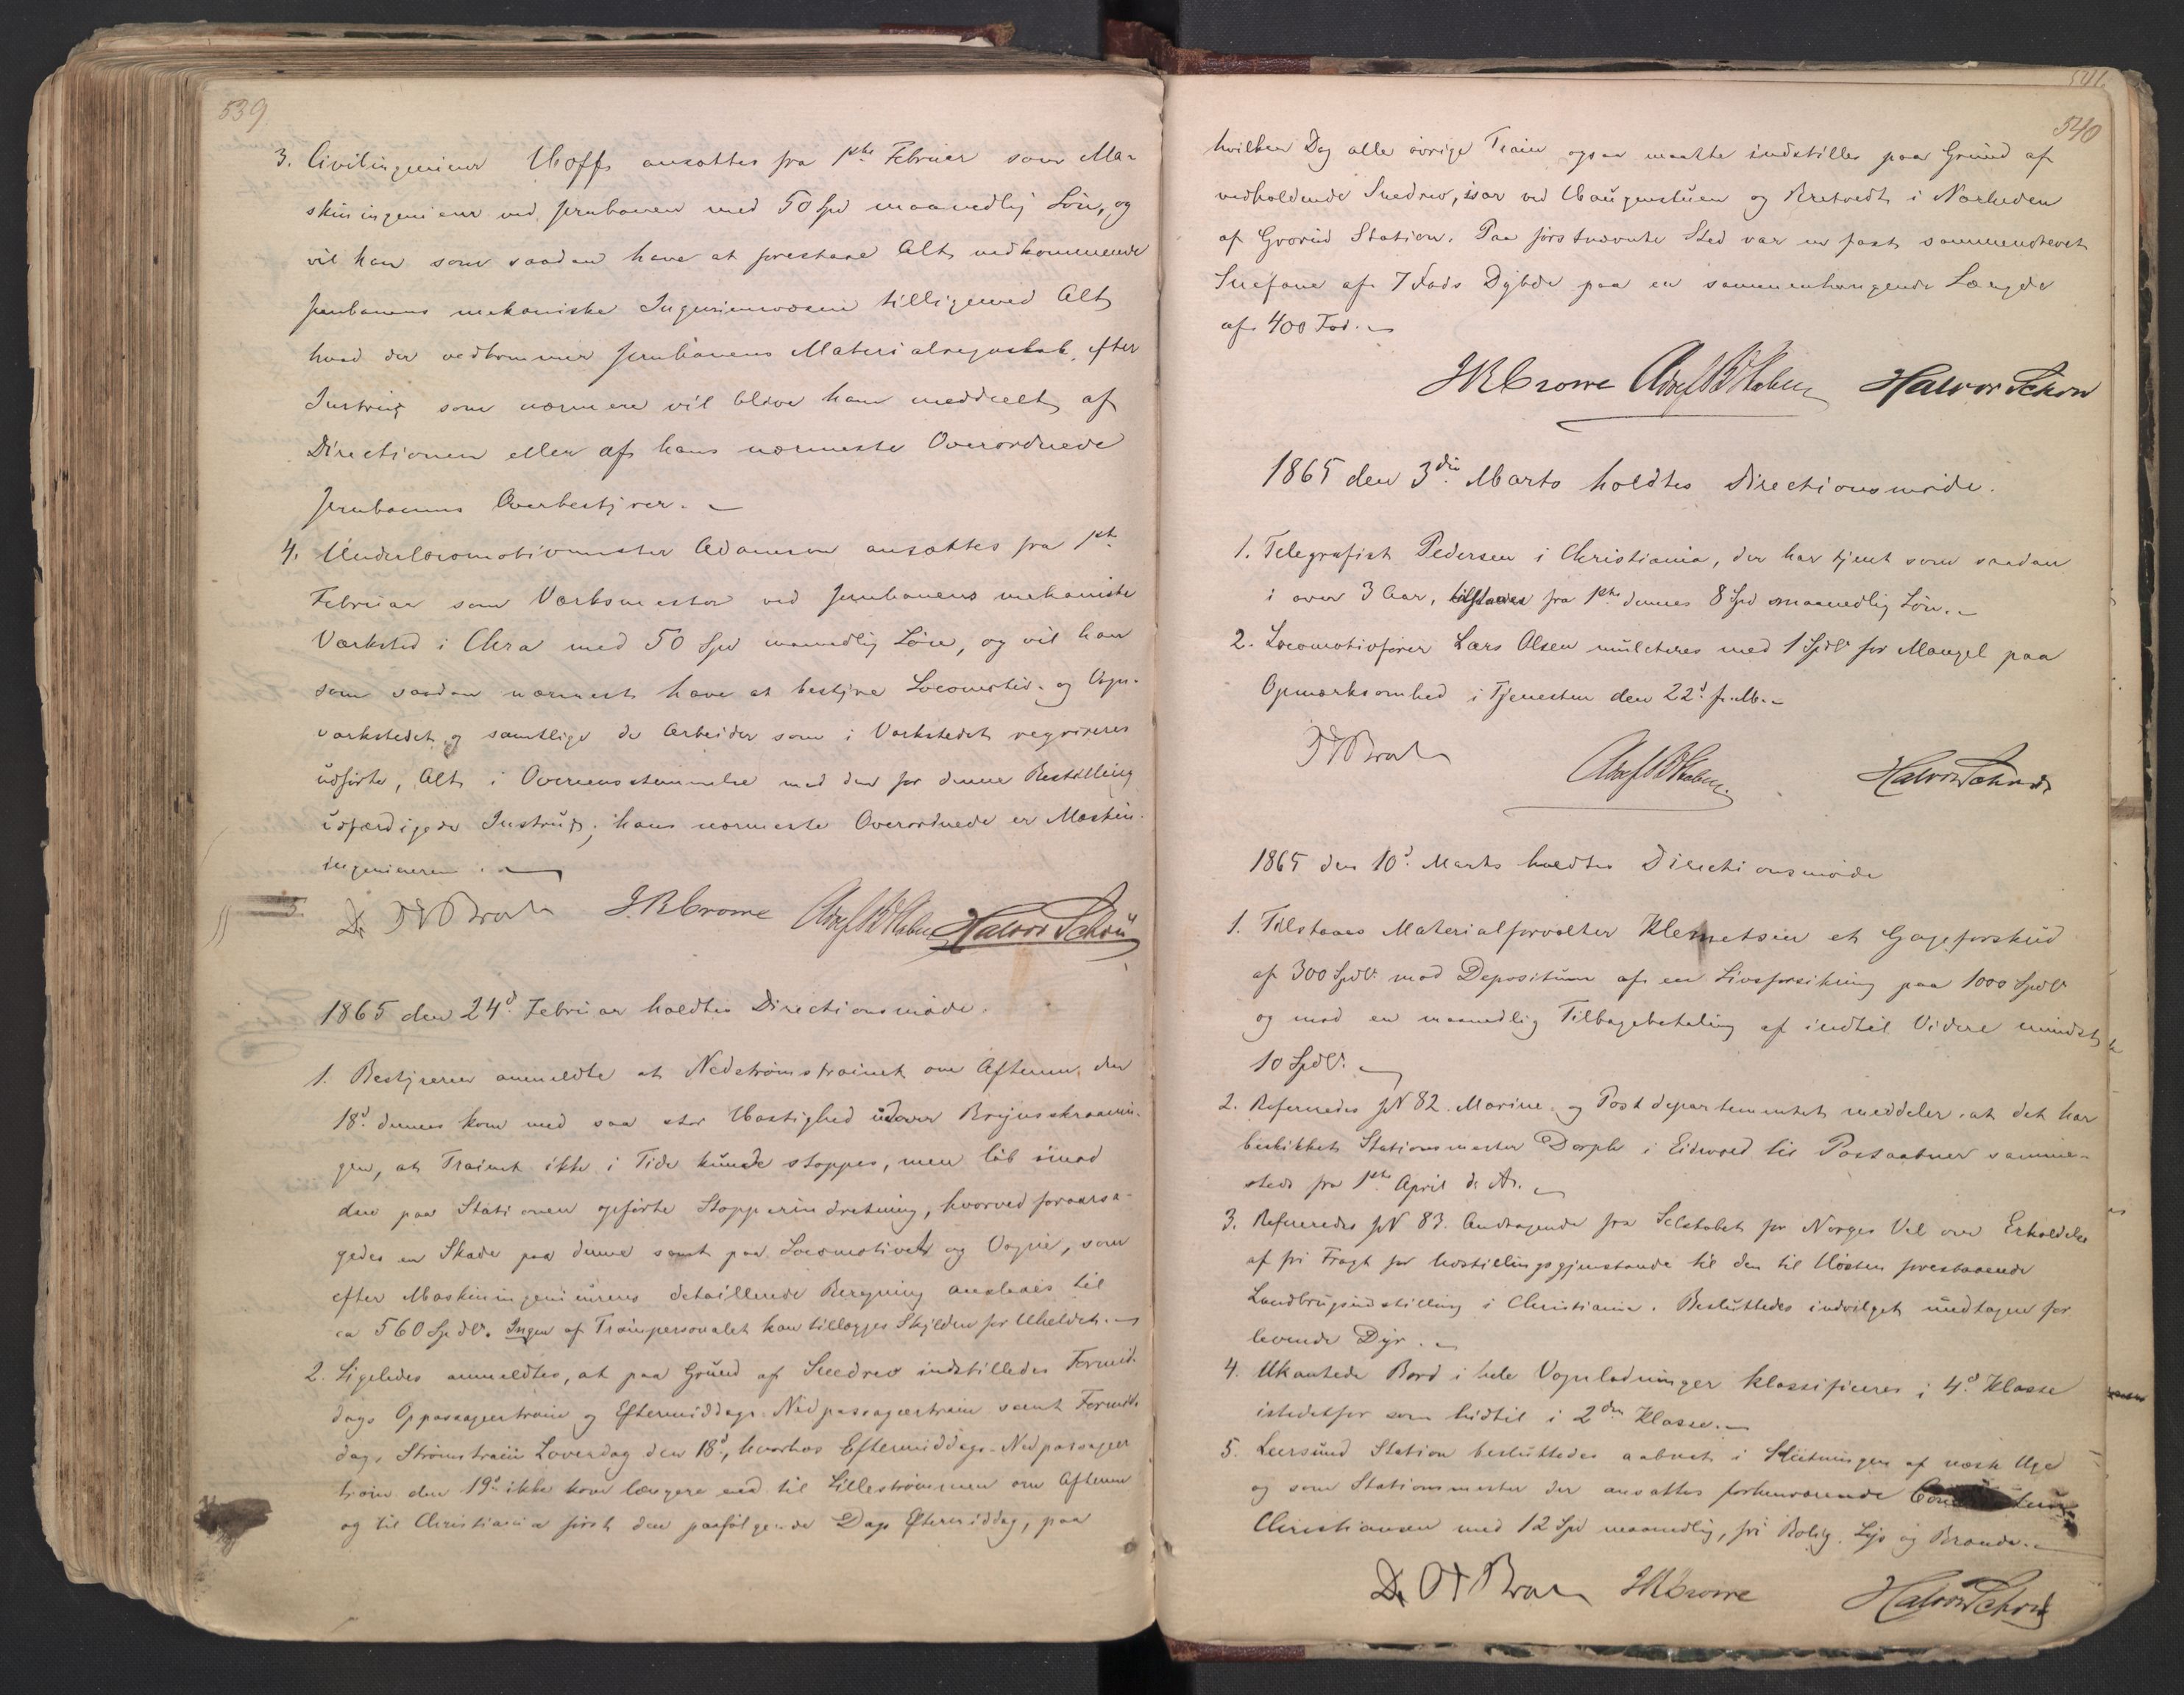 539
3. Civilingenieur Hoff ansattes fra 1ste Februar som Ma-
skiningenieur ved Jernbanen med 50 Spd maanedlig Løn, og
vil han som saadan have at forestaae Alt, vedkommende
Jernbanens mekaniske Ingenieurvæsen tilligemed Alt,
hvad der vedkommer Jernbanens Materialregnskab, efter
Instrux som nærmere vil blive ham meddeelt af
Directionen eller af hans nærmeste Overordnede
Jernbanens Overbestyrer.
4. Underlocomotivmester Adamson ansattes fra 1ste
Februar som Værksmester ved Jernbanens mekaniske
Værksted i Chra med 50 Spd maanedlig Løn, og vil han
som saadan nærmest have at bestyre Locomotiv- og Vogn-
værkstedet og samtlige de Arbeider som i Værkstedet reqvireres
udførte, Alt i Overeensstemmelse med den for denne Bestilling
udfærdigede Instrux; hans nærmeste Overordnede er Maskin-
ingenieuren.
J. R. Crowe Halvor Schou
1865 den 24d Februar holdtes Directionsmøde.
1. Bestyreren anmeldte at Nedstrømstrainet om Aftenen den
18d dennes kom med saa stor Hastighed udover Brynsskraanin-
gen, at Trainet ikke i Tide kunde stoppes, men løb imod
den paa Stationen opførte Stopperindretning, hvorved foraarsa-
gedes en Skade paa denne samt paa Locomotivet og Vogne, som
efter Maskiningenieurens detaillerede Beregning ansloges til
ca 560 Spdlr. Ingen af Trainpersonalet kan tillægges Skylden for Uheldet.
2. Ligeledes anmeldtes, at paa Grund af Sneedrev indstilledes Formid-
dags Oppassagertrain og Eftermiddags Nedpassagertrain samt Formid-
dags Strømstrain Løverdag den 18d, hvorhos Eftermiddags-Nedpassager
train den 19d ikke kom længere end til Lillestrømmen om Aftenen
og til Christiania først den paafølgende Dags Eftermiddag, paa
540
hvilken Dag alle øvrige Train ogsaa maatte indstilles paa Grund af
vedholdende Snedrev, især ved Haugenstuen og Bretvedt i Nærheden
af Grorud Station. Paa førstnævnte Sted var en fast sammendrevet
Snefane af 7 Fods Dybde paa en sammenhængende Længde
af 400 Fod.
J R Crowe Halvor Schou
1865 den 3die Marts holdtes Directionsmøde.
1. Telegrafist Pedersen i Christiania, der har tjent som saadan
i over 3 Aar, tilstaaes fra 1ste dennes 8 Spd maanedlig Løn.
2. Locomotivfører Lars Olsen mulcteres med 1 Spdlr for Mangel paa
Opmærksomhed i Tjenesten den 22d f. M.
Halvor Schou
1865 den 10d Marts holdtes Directionsmøde
1. Tilstaaes Materialforvalter Klemetsen et Gageforskud
af 300 Spdlr mod Depositum af en Livsforsikring paa 1000 Spdlr
og mod en maanedlig Tilbagebetaling af indtil Videre mindst
10 Spdlr.
2. Refereredes JN 82. Marine- og Postdepartementet meddeler at det har
beskikket Stationsmester Dorph i Eidsvold til Postaabner samme-
steds fra 1ste April d. A.
3. Refereredes JN 83. Andragende fra Selskabet for Norges Vel om Erholdelse
af fri Fragt for Udstillingsgjenstande til den til Høsten forestaaende
Landbrugsudstilling i Christiania. Besluttedes indvilget undtagen for
levende Dyr.
4. Ukantede Bord i hele Vognladninger klassificeres i 4d Klasse
istedetfor som hidtil i 2den Klasse.
5. Leersund Station besluttedes aabnet i Slutningen af næste Uge
og som Stationsmester der ansattes forhenværende
Christiansen med 12 Spd maanedlig, fri Bolig, Lys og Brænde.
J R Crowe Halvor Schou